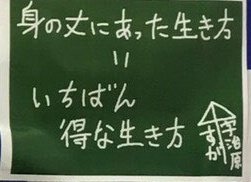 身の丈にあった生き方
＝
いちばん
得な生き方
宇治原
すが